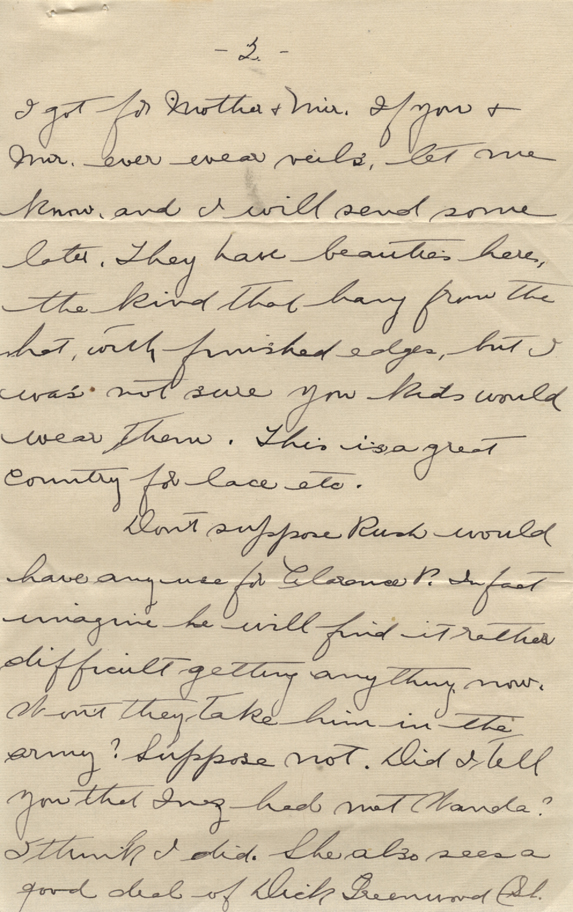 - 2. -
I got for Mother & Mir. If you &
Mir. ever wear veils, let me
know, and I will send some
later. They have beauties here,
the kind that hang from the
hat, with finished edges, but I
was not sure you kids would
wear them. This is a great
country for lace etc.
Don't suppose Rush would
have any use for Clarence P. In fact
imagine he will find it rather
difficult getting anything now.
Wont they take him in the
army? Suppose not. Did I tell
you that Inez had met Wanda?
I think I did. She also sees a
good deal of Dick Greenwood